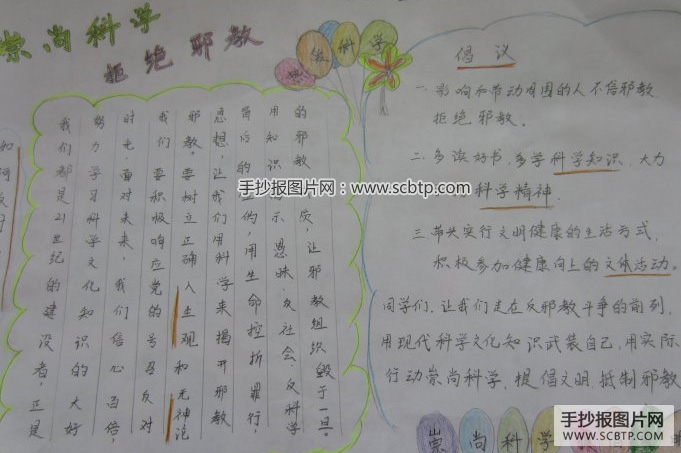 崇尚科学
拒绝邪教
崇尚科学
我们都是21世纪的建设者,正是
努力学习科学文化知识的大好
时光,面对未来,我们信心百倍,
我们要积极响应党的号召反对
邪教,要树立正确人生观和无神论
思想,让我们用科学来揭开邪教
后的 的,用生命控折罪行,
用知识 示愚昧、反社会、反科学
的邪教 质,让邪教组织毁于一旦。
倡议
一.影响和带动周围的人不信邪教
拒绝邪教。
二.多读好书,多学科学知识,大力
科学精神.
三.带头实行文明健康的生活方式,
积极参加健康向上的文体活动。
同学们,让我们走在反邪教斗争的前列,
用现代科学文化知识武装自己,用实际
行动崇尚科学,提倡文明,抵制邪教
崇尚科学
手抄报图片网:www.scbtp.com
手抄报图片网
WWW.SCBTP.COM